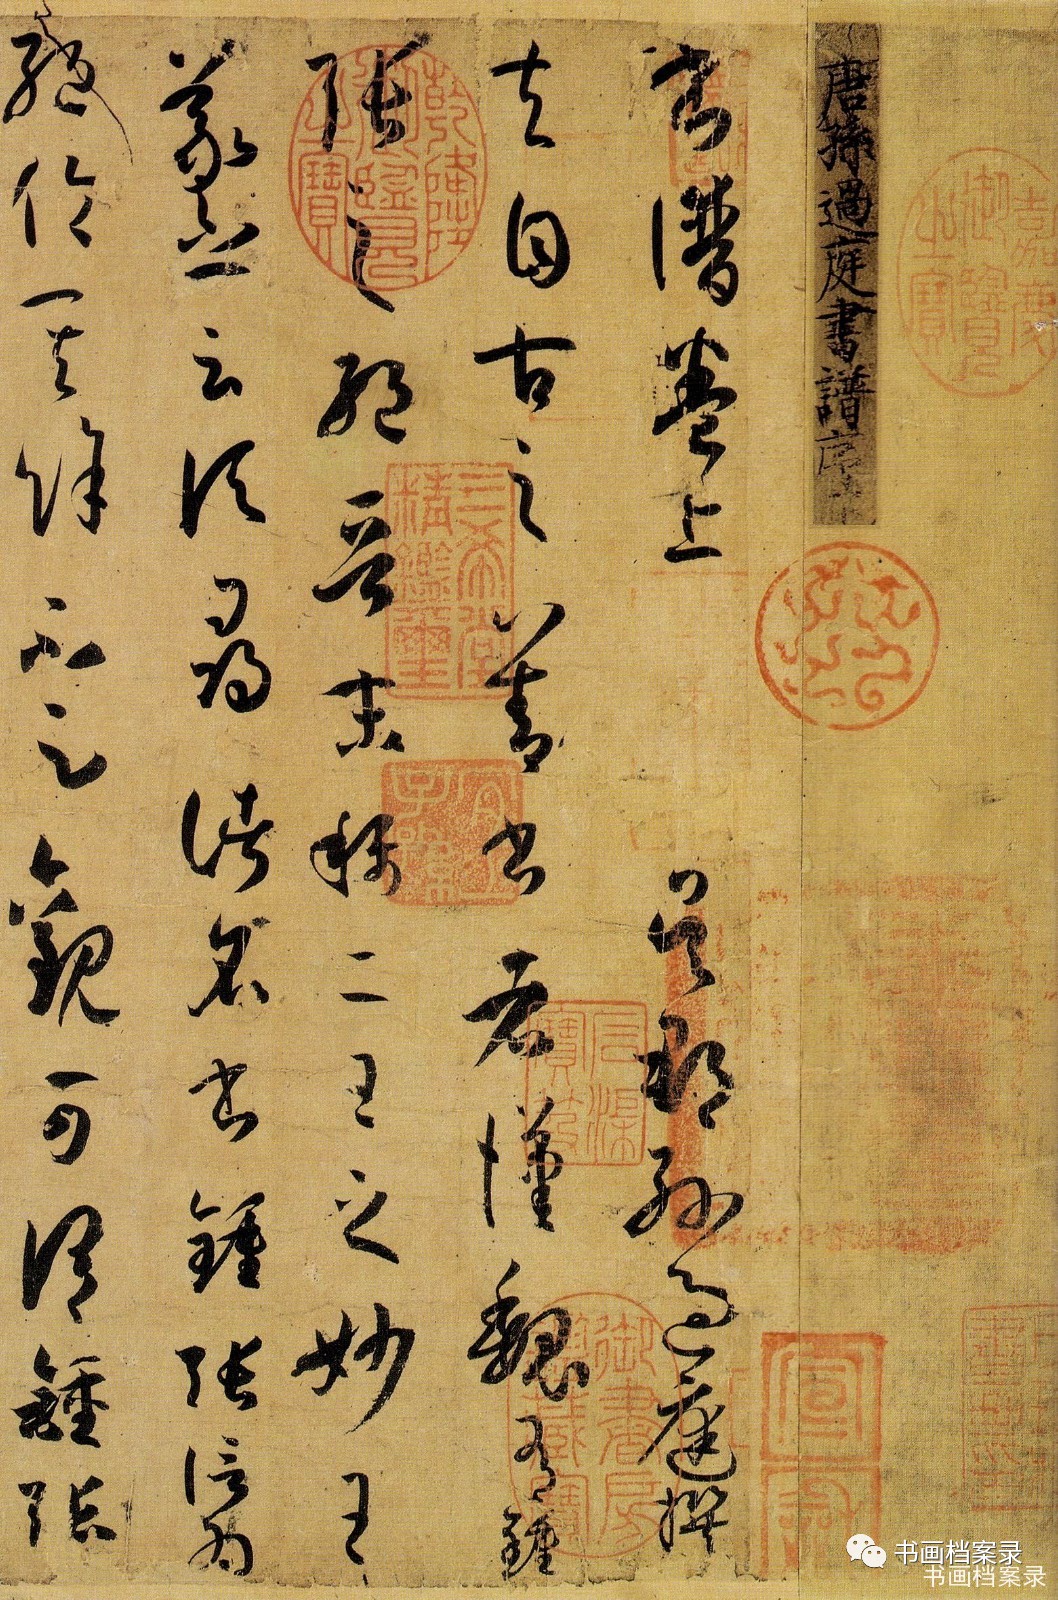 嘉慶御覽之寶
唐孫過庭書譜序
書譜卷上 吳郡孫過庭撰
夫自古之善書者漢魏有鍾
張之絕晉末稱二王之妙王
羲之云頃尋諸名書鍾張信為
絕倫其餘不足觀可謂鍾張
乾隆御覽之寶
三希堂精鑑璽
宜子孫
石渠寶笈
御書房鑑藏寶
宣和
书画档案录
书画档案录